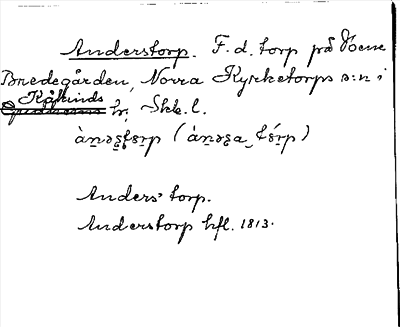 Anderstorp. F. d. torp på Noene
Bredegården, Norra Kyrketorps s:n i
Kåkinds
hr, Skb. l.
àṇəʂʈɛrp (àṇəʂa ʈɛ́rp)
Anders' torp.
Anderstorp hfl. 1813.